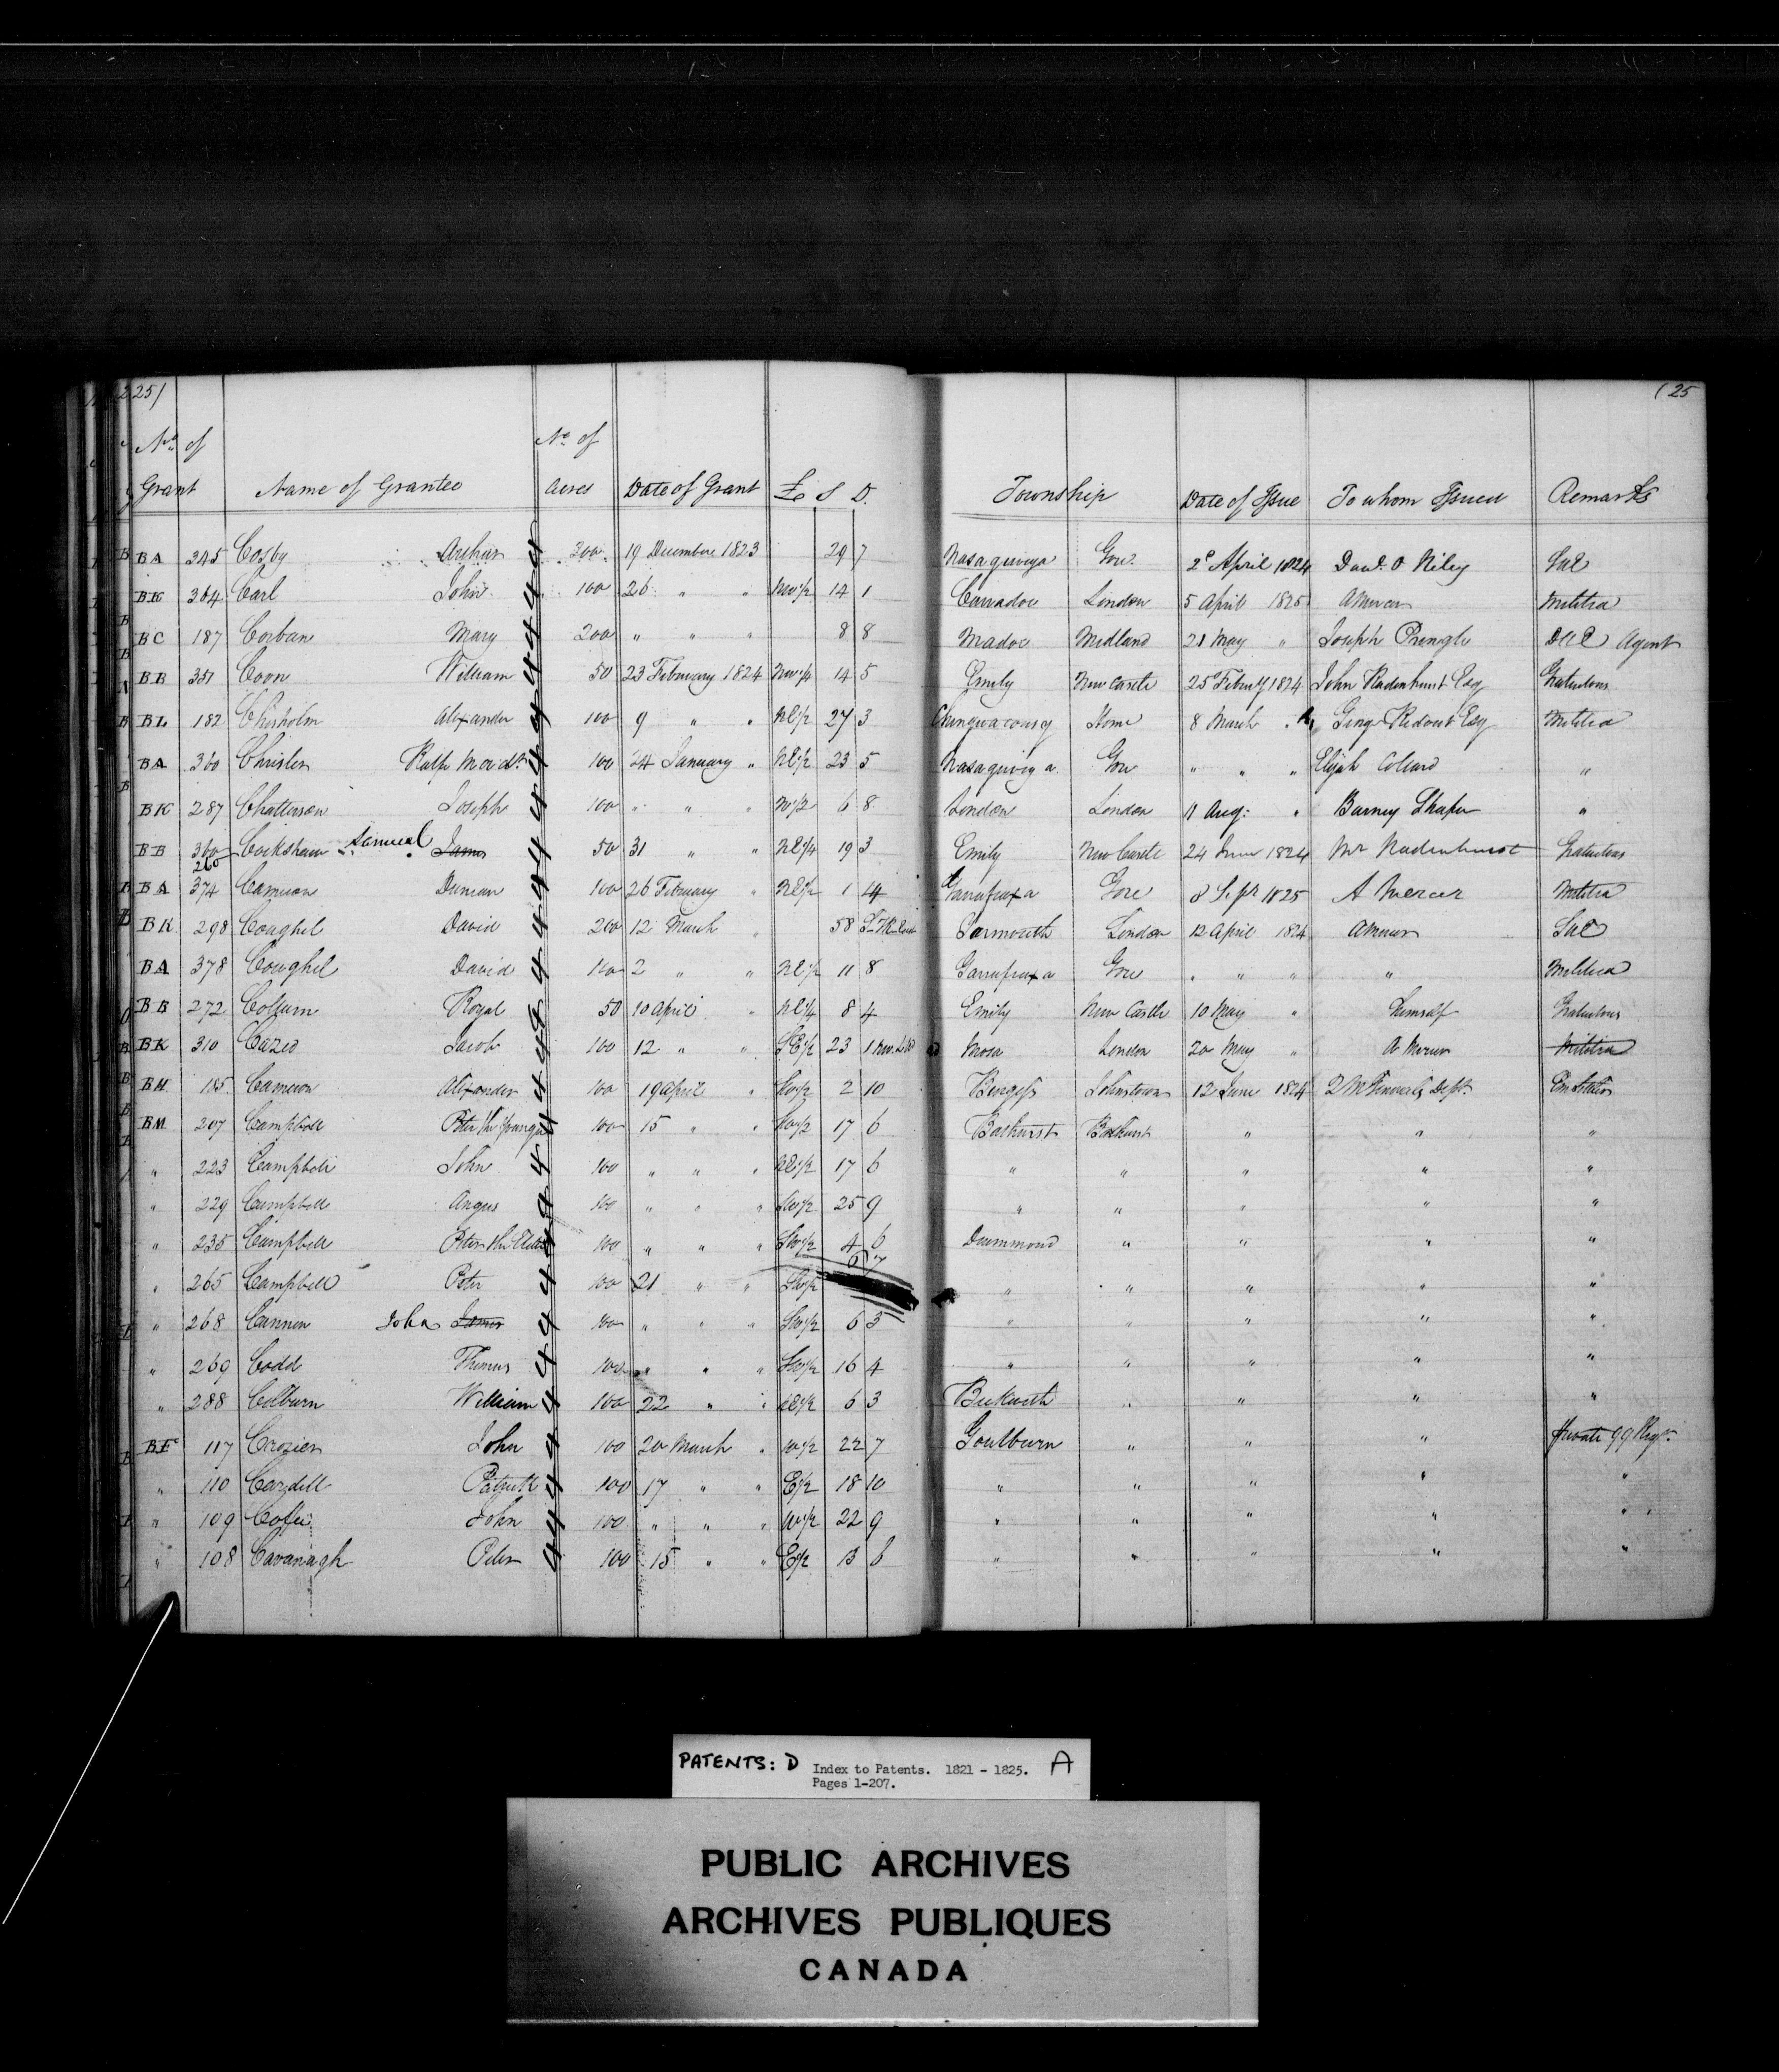 225/ (25
No. of No. of
Grant Name of Grantee Acres Date of Grant £ S D. Township Date of Issue To whom Issued Remarks
BA 345 Cosby Arthur 200 19 December 1823 29 7 Nasagiweya Gore 2d April 1824 Danl. O Riley SUE
BK 304 Carl John 100 26 " " NW1/2 14 1 Carradoc London 5 April 1825 A Mercer Militia
BC 187 Corban Mary 200 " " " 8 8 Madoc Midland 21 May " Joseph Pringle DUE Agent
BB 351 Coon William 50 23 February 1824 NW1/4 14 5 Emily New Castle 25 Februy 1824 John Radenhurst Esq Gratuitous
BL 182 Chisholm Alexander 100 9 " " NE1/2 27 3 Chingwacousy Home 8 March " Geog Ridout Esq Militia
BA 360 Chrisler Ralph 100 24 January " NE1/2 23 5 Nasagiwiya Gore " " " Elijah Collard "
BK 287 Chatterson Joseph 100 " " " N1/2 6 8 London London 11 Aug: " Barney Shafer "
BB 360 Cocksham Samuel James 50 31 " " NE1/4 19 3 Emily New Castle 24 June 1824 Mr Radenhurst Gratuitous
260
BA 374 Cameron Duncan 100 26 February " NE1/2 1 14 Garrafraxa Gore 8 Sepr 1825 A Mercer Militia
BK 298 Coughel David 200 12 March " 58 Yarmouth London 12 April 1824 A Mercer SUE
BA 378 Coughel David 100 2 " " NE1/2 11 8 Garrafraxa Gore " " " " Militia
BB 272 Collum Royal 50 10 April " NE1/4 8 4 Emily New Castle 10 May " himself Gratuitous
BK 310 Cazeo Jacob 100 12 " " SE1/2 23 1 Mosa London 20 May " A Mercer Militia
BH 185 Cameron Alexander 100 19 April " SW1/2 2 10 Burgess Johnstown 12 June 1824 Q M General's Dept. Em Settler
BM 207 Campbell Peter the Younger 100 15 " " SW1/2 17 6 Bathurst Bathurst " " "
" 223 Campbell John 100 " " " NE1/2 17 6 " " " " "
" 229 Campbell Angus 100 " " " SW1/2 25 9 " " " " "
" 235 Campbell Peter the Elder 100 " " " SW1/2 4 6 Drummond " " " "
" 265 Campbell Peter 100 21 " " SW1/2 6 7 " " " " "
" 268 Cannon John James 100 " " " SW1/2 6 3 " " " " "
" 269 Codd Thomas 100 " " " SW1/2 16 4 " " " " "
" 288 Colburn William 100 22 " " NE1/2 6 3 Beckwith " " " "
BF 117 Crozier John 100 20 March " W1/2 22 7 Goulburn " " " Private 99 Regt.
" 110 Cardell Patrick 100 17 " " E1/2 18 10 " " " " "
" 109 Cofee John 100 " " " W1/2 22 9 " " " " "
" 108 Cavanagh Peter 100 15 " " E1/2 13 6 " " " " "
PATENTS: D Index to Patents. 1821 - 1825. A
Pages 1-207.
PUBLIC ARCHIVES
ARCHIVES PUBLIQUES
CANADA